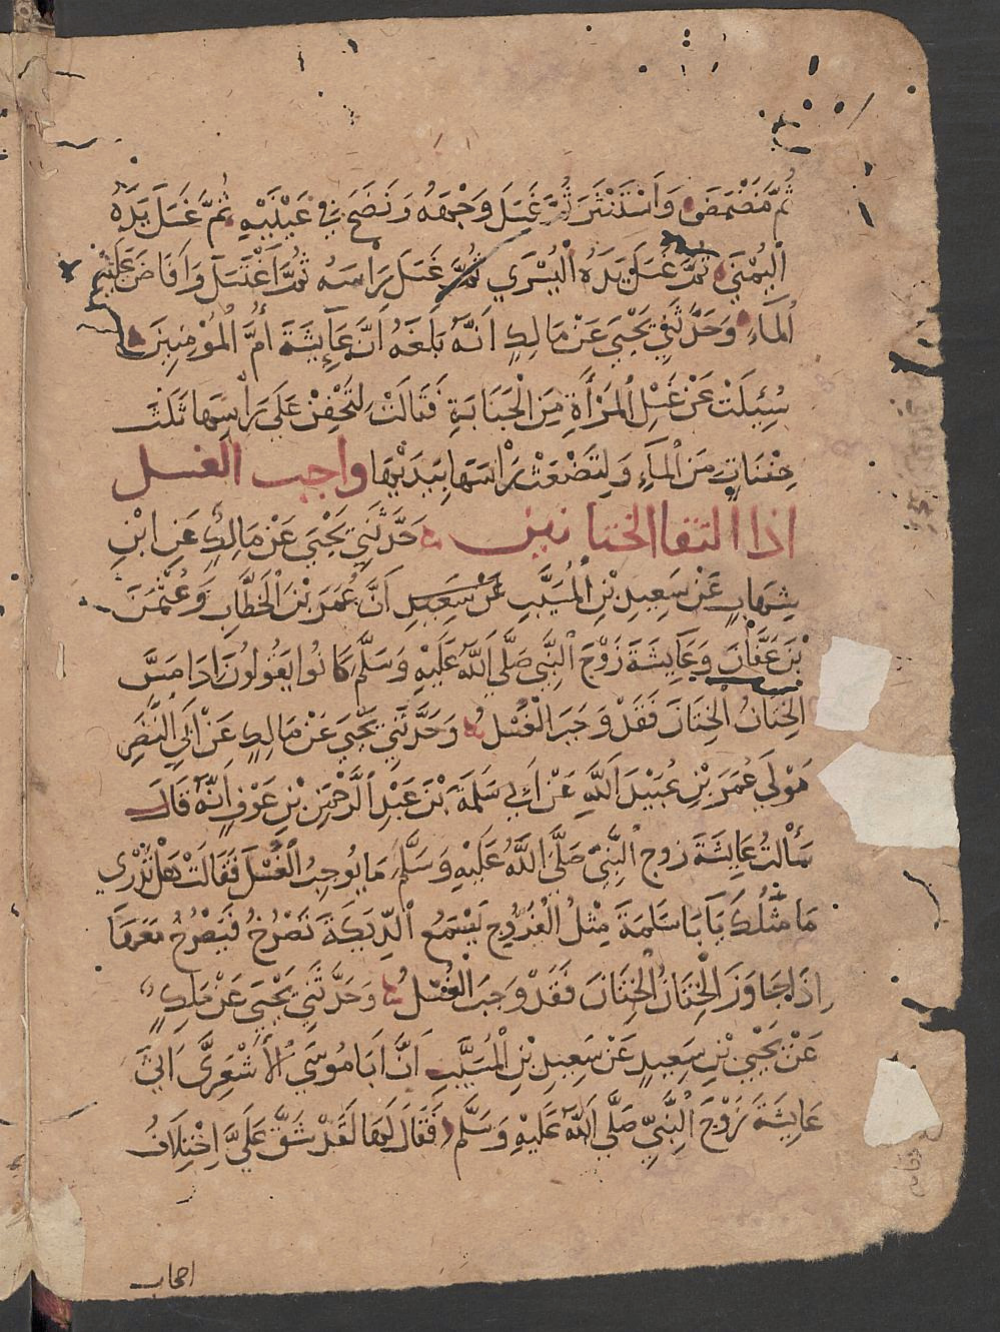 ثُمَّ مَضْمَضَ وَاَسْتَنْثَرَ ثُمَّ غَسَلَ وَجْهَهُ وَنَضَحَ فِي عَيْنَيْهِ ثُمَّ غَسَلَ يَدَهُ
اَلْيُمْنَي ثُمَّ غَسَلَ يَدَهُ اَلْيُسْرَي ثُمَّ غَسَلَ رَاْسَهُ ثُمَّ اَغْتَسَلَ وَاَفَاضَ عَلَيْهِ
اُلْمَآءَ وَحَدَّثَنِي يَحْيَي عَنْ مَالِكٍ اَنَّهُ بَلَغَهُ اَنَّ عَآيِشَةَ أُمَّ اُلْمُوْمِنِينَ
سُيِلَتْ عَنْ غَسْلِ اِلْمَرْأَةِ مِنَ اَلْجَنَابَةِ فَقَالَتْ لِتَحْفِنْ عَلَي رَاْسِهَا ثَلَثَ
حِفْنَاتٍ مِنَ اَلْمَآءِ وَلِتَضْغَثْ رَاْسَهَا بِيَدَيْهَا واجب الغسل
اذا التقا الختانين حَدَّثَنِي يَحْيَي عَنْ مَالِكٍ عَنِ ابْنِ
شِهَابٍ عَنْ سَعِيدِ بْنِ اِلْمُسَيَّبِ عَنْ سَعِيدِ اَنَّ عُمَرَ بْنَ اَلْخَطَّابِ وَعُثْمَنَ
بْنَ عَفَّانَ وَعَآيِشَةَ زَوْجَ اَلنَّبِي صَلَّي اَللَّهُ عَلَيْهِ وَسَلَّم كَانُوا يَقُولُونَ اِذَا مَسَّ
اَلْخِتَانُ اُلْخِتَانَ فَقَدْ وَجَبَ اَلْغُسْلُ وَحَدَّثَنِي يَحْيَي عَنْ مَالِكٍ عَنْ اَبِي اِلنَّضْرِ
مَوْلَي عُمَرَ بْنِ عُبَيْدِ اَللَّهِ عَنْ اَبِي سَلَمَةَ بْنَ عَبْدِ اِلرَّحْمَنِ بْنِ عَوْفٍ اَنَّهُ قَالَ
سَأَلْتُ عَايِشَةَ زوج اَلنَّبِيِّ صَلَّي اَللَّهُ عَلَيْهِ وَسَلَّمَ مَا يُوجِبُ اُلْغُسْلَ فَقَالَتْ هَلْ تَدْرِي
مَا مَثَلُكَ يَآ بَا سَلَمَةَ مِثْلُ اُلْفَرُّوجِ يَسْمَعُ اُلدِّيَكَةَ تَصْرُخُ فَيَصْرُخُ مَعَهَا
اِذَا جَاوَزَ اَلْخِتَانُ اُلْخِتَانَ فَقَدْ وَجَبَ اَلْغُسْلُ وَحَدَّثَنِي يَحْيَي عَنْ مَلِكٍ
عَنْ يَحْيَي بْنِ سَعِيدٍ عَنْ سَعِيدِ بْنِ اِلْمُسَيَّبِ اَنَّ اَبَا مُوسَي اَلْأَشْعَرِيَّ اَتَي
عَايِشَةَ زَوْجَ اَلنَّبِيِّ صَلَّي اَللَّهُ عَلَيْهِ وَسَلَّمَ فَقَالَ لَهَا لَقَدْ شَقَّ عَلَيَّ اِخْتِلَافُ
اصحاب